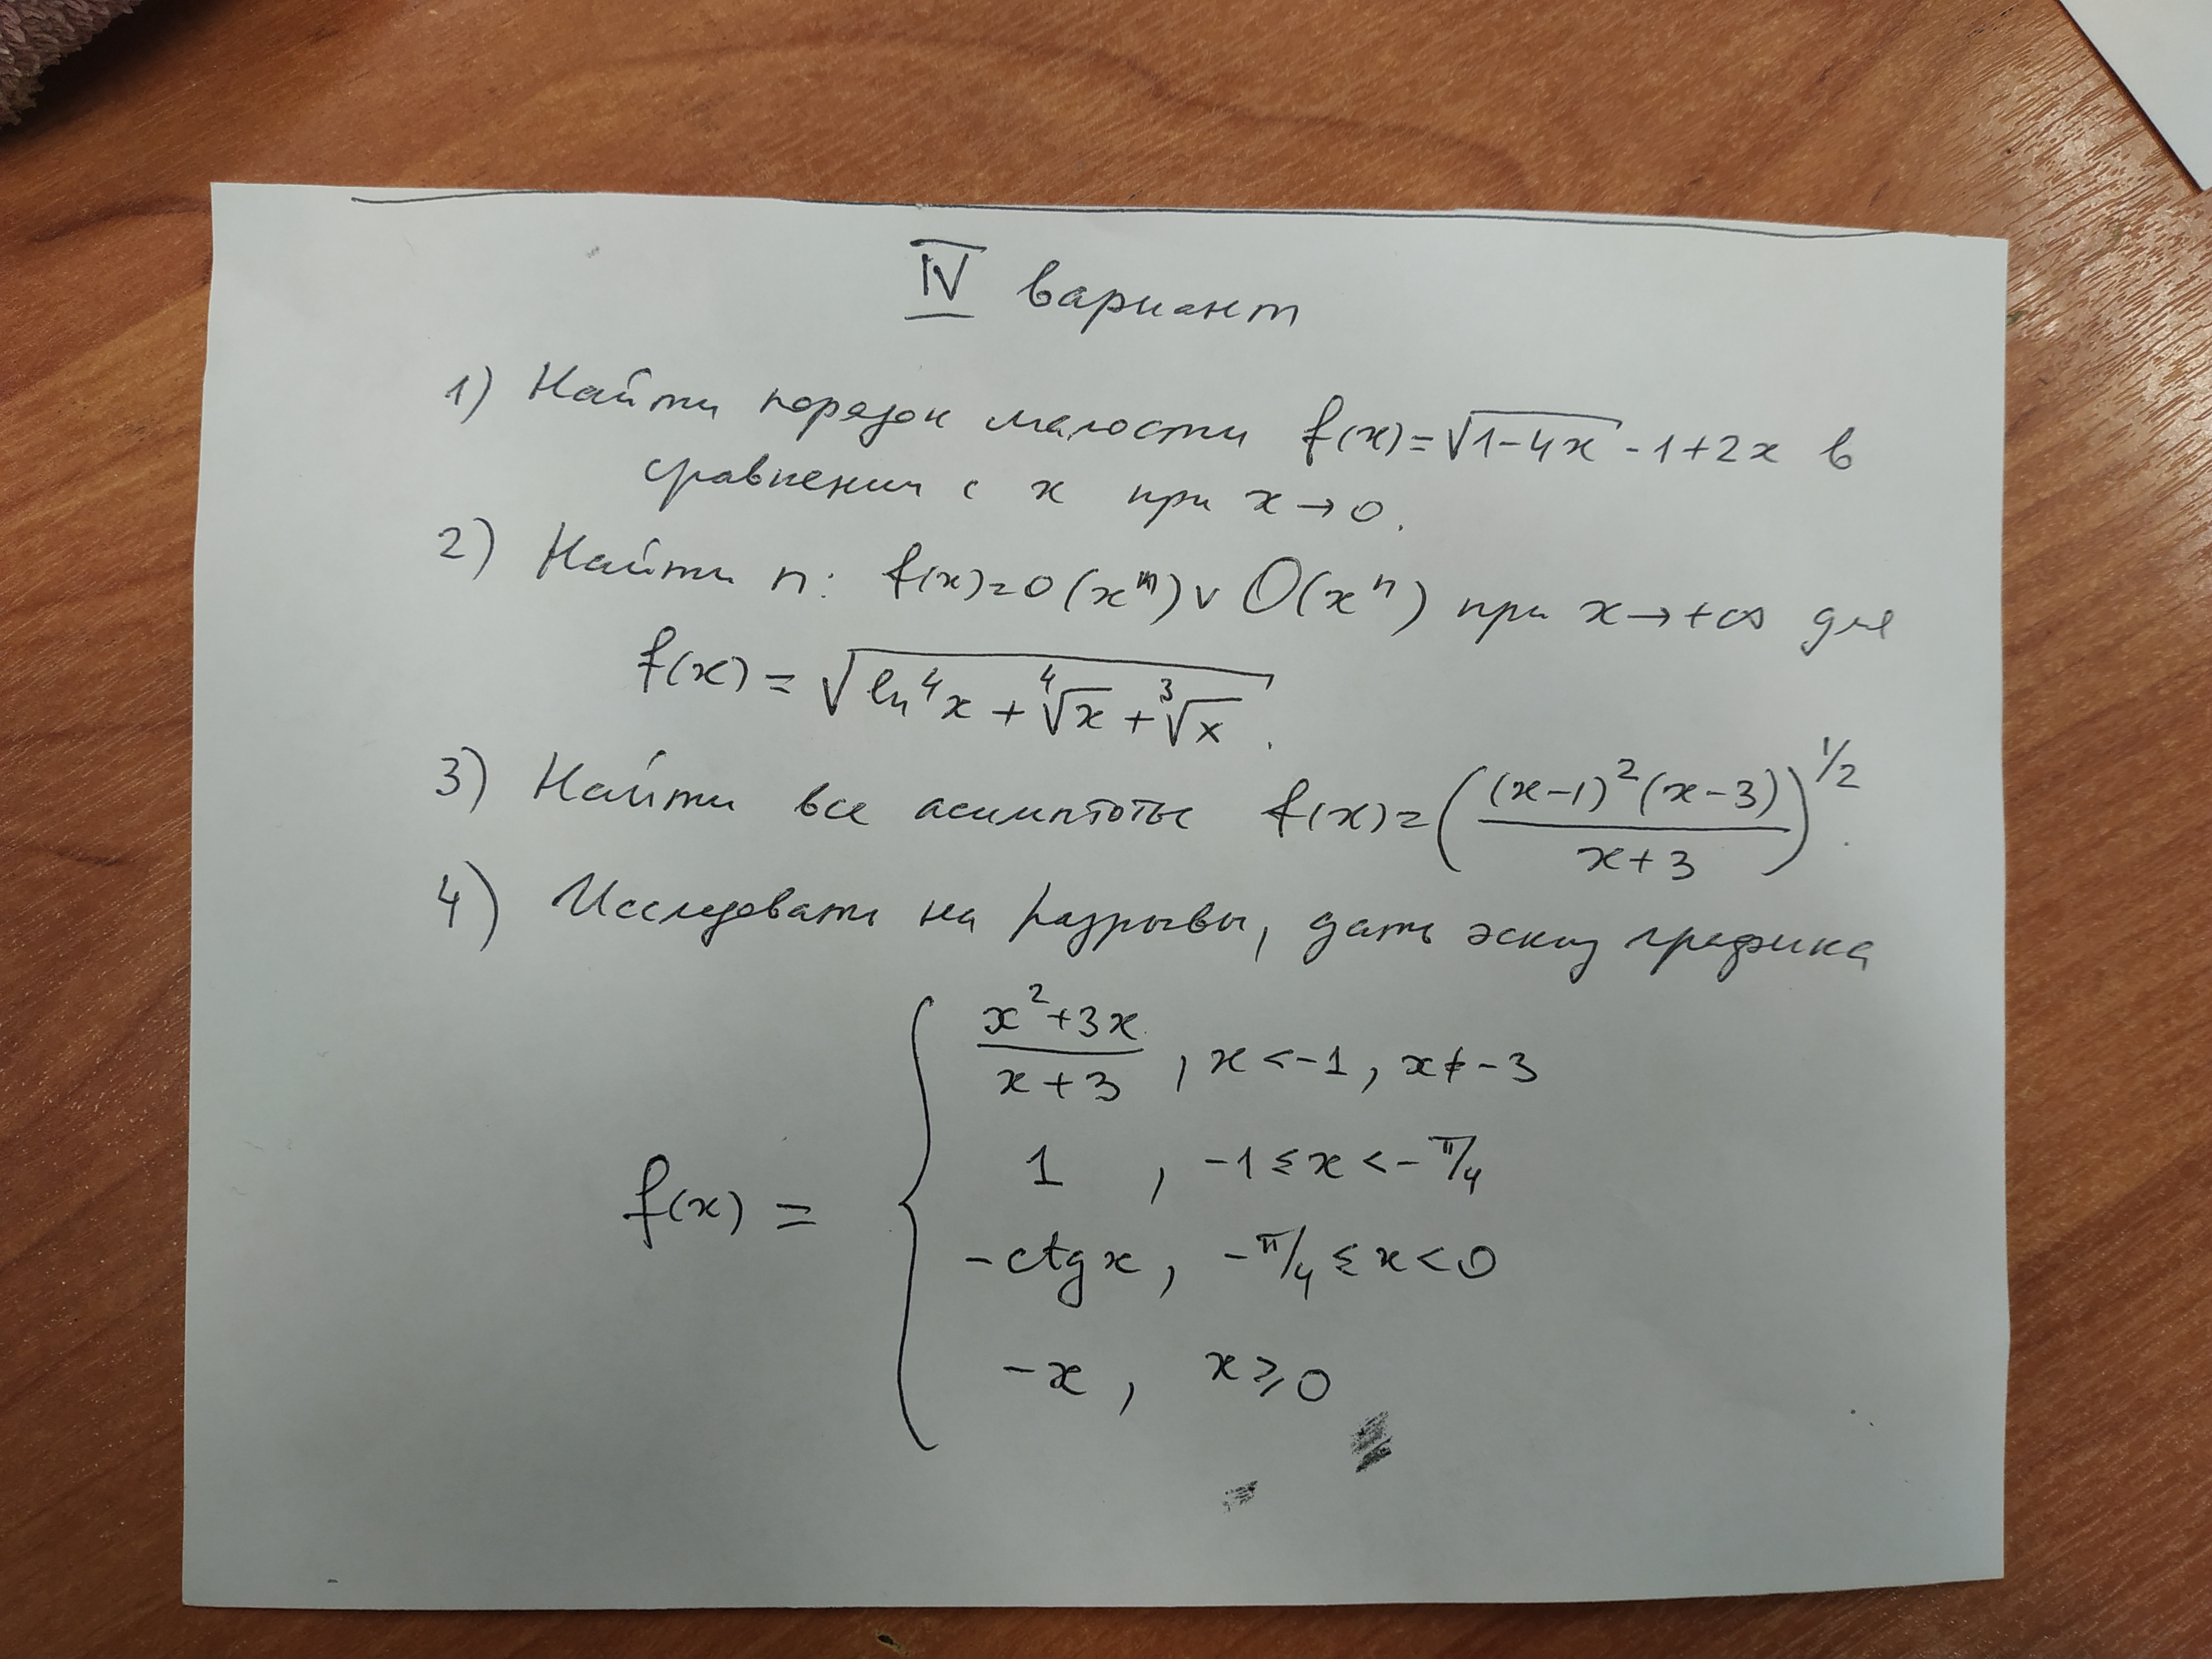 IV вариант
1) Найти порядок малости f(x)=√(1-4x) -1+2x в
сравнении с x при x→0.
2) Найти n: f(x)=o(x^n) ∨ O(x^n) при x→+∞ для
f(x) = √(ln⁴x + ⁴√x + ³√x).
3) Найти все асимптоты f(x)=((x-1)²(x-3)/(x+3))^(1/2).
4) Исследовать на разрывы, дать эскиз графика
f(x) = {
(x²+3x)/(x+3), x<-1, x≠-3
1, -1≤x<-π/4
-ctgx, -π/4≤x<0
-x, x⩾0